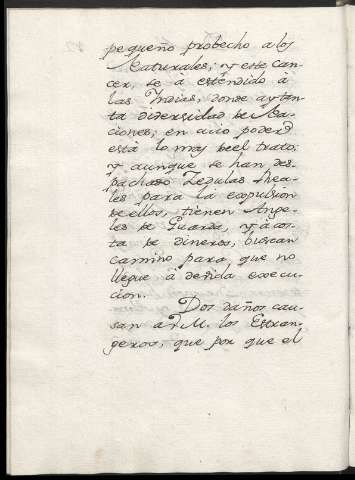 pequeño probecho a los
Naturales; y este can-
cer, se à estendido à
las Yndias, donde ay tan-
ta diversidad de Na-
ciones, en cuio poder
està lo mas de el trato;
y aunque se han des-
pachado Zedulas Rea-
les para la expulsion
de ellos, tienen Ange-
les de Guarda, y à cos-
ta de dineros, buscan
camino para, que no
llegue à devida execu-
cion.
Dos daños cau-
san a V.M. los Estran-
geros, que por que el